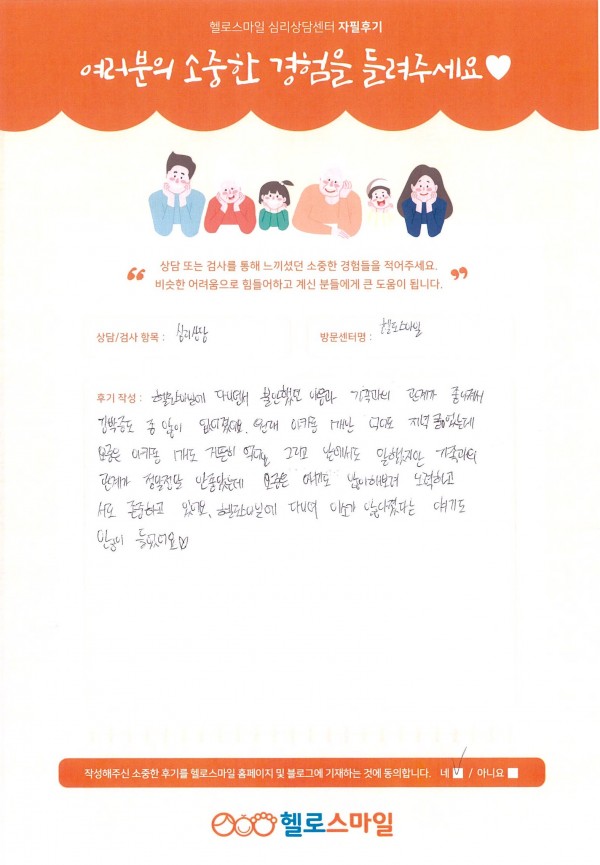 헬로스마일 심리상담센터 자필후기
여러분의 소중한 경험을 들려주세요♥
상담 또는 검사를 통해 느끼셨던 소중한 경험들을 적어주세요.
비슷한 어려움으로 힘들어하고 계신 분들에게 큰 도움이 됩니다.
상담/검사 항목 : 심리상담
방문센터명 : 헬로스마일
후기 작성 : 헬로스마일에 다니면서 불안했던 마음과 가족과의 관계가 좋아져서
강박증도 좀 많이 없어졌어요. 원래
요즘은 그리고 앞에서도 말했지만 가족과의
관계가 정말전말 안좋았는데 요즘은 많이해보려 노력하고
서로 존중하고 있어요. 헬로스마일에 다니며 많아졌다는 얘기도
많이 들었어요♡
작성해주신 소중한 후기를 헬로스마일 홈페이지 및 블로그에 기재하는 것에 동의합니다. 네 ✓ / 아니요
헬로스마일